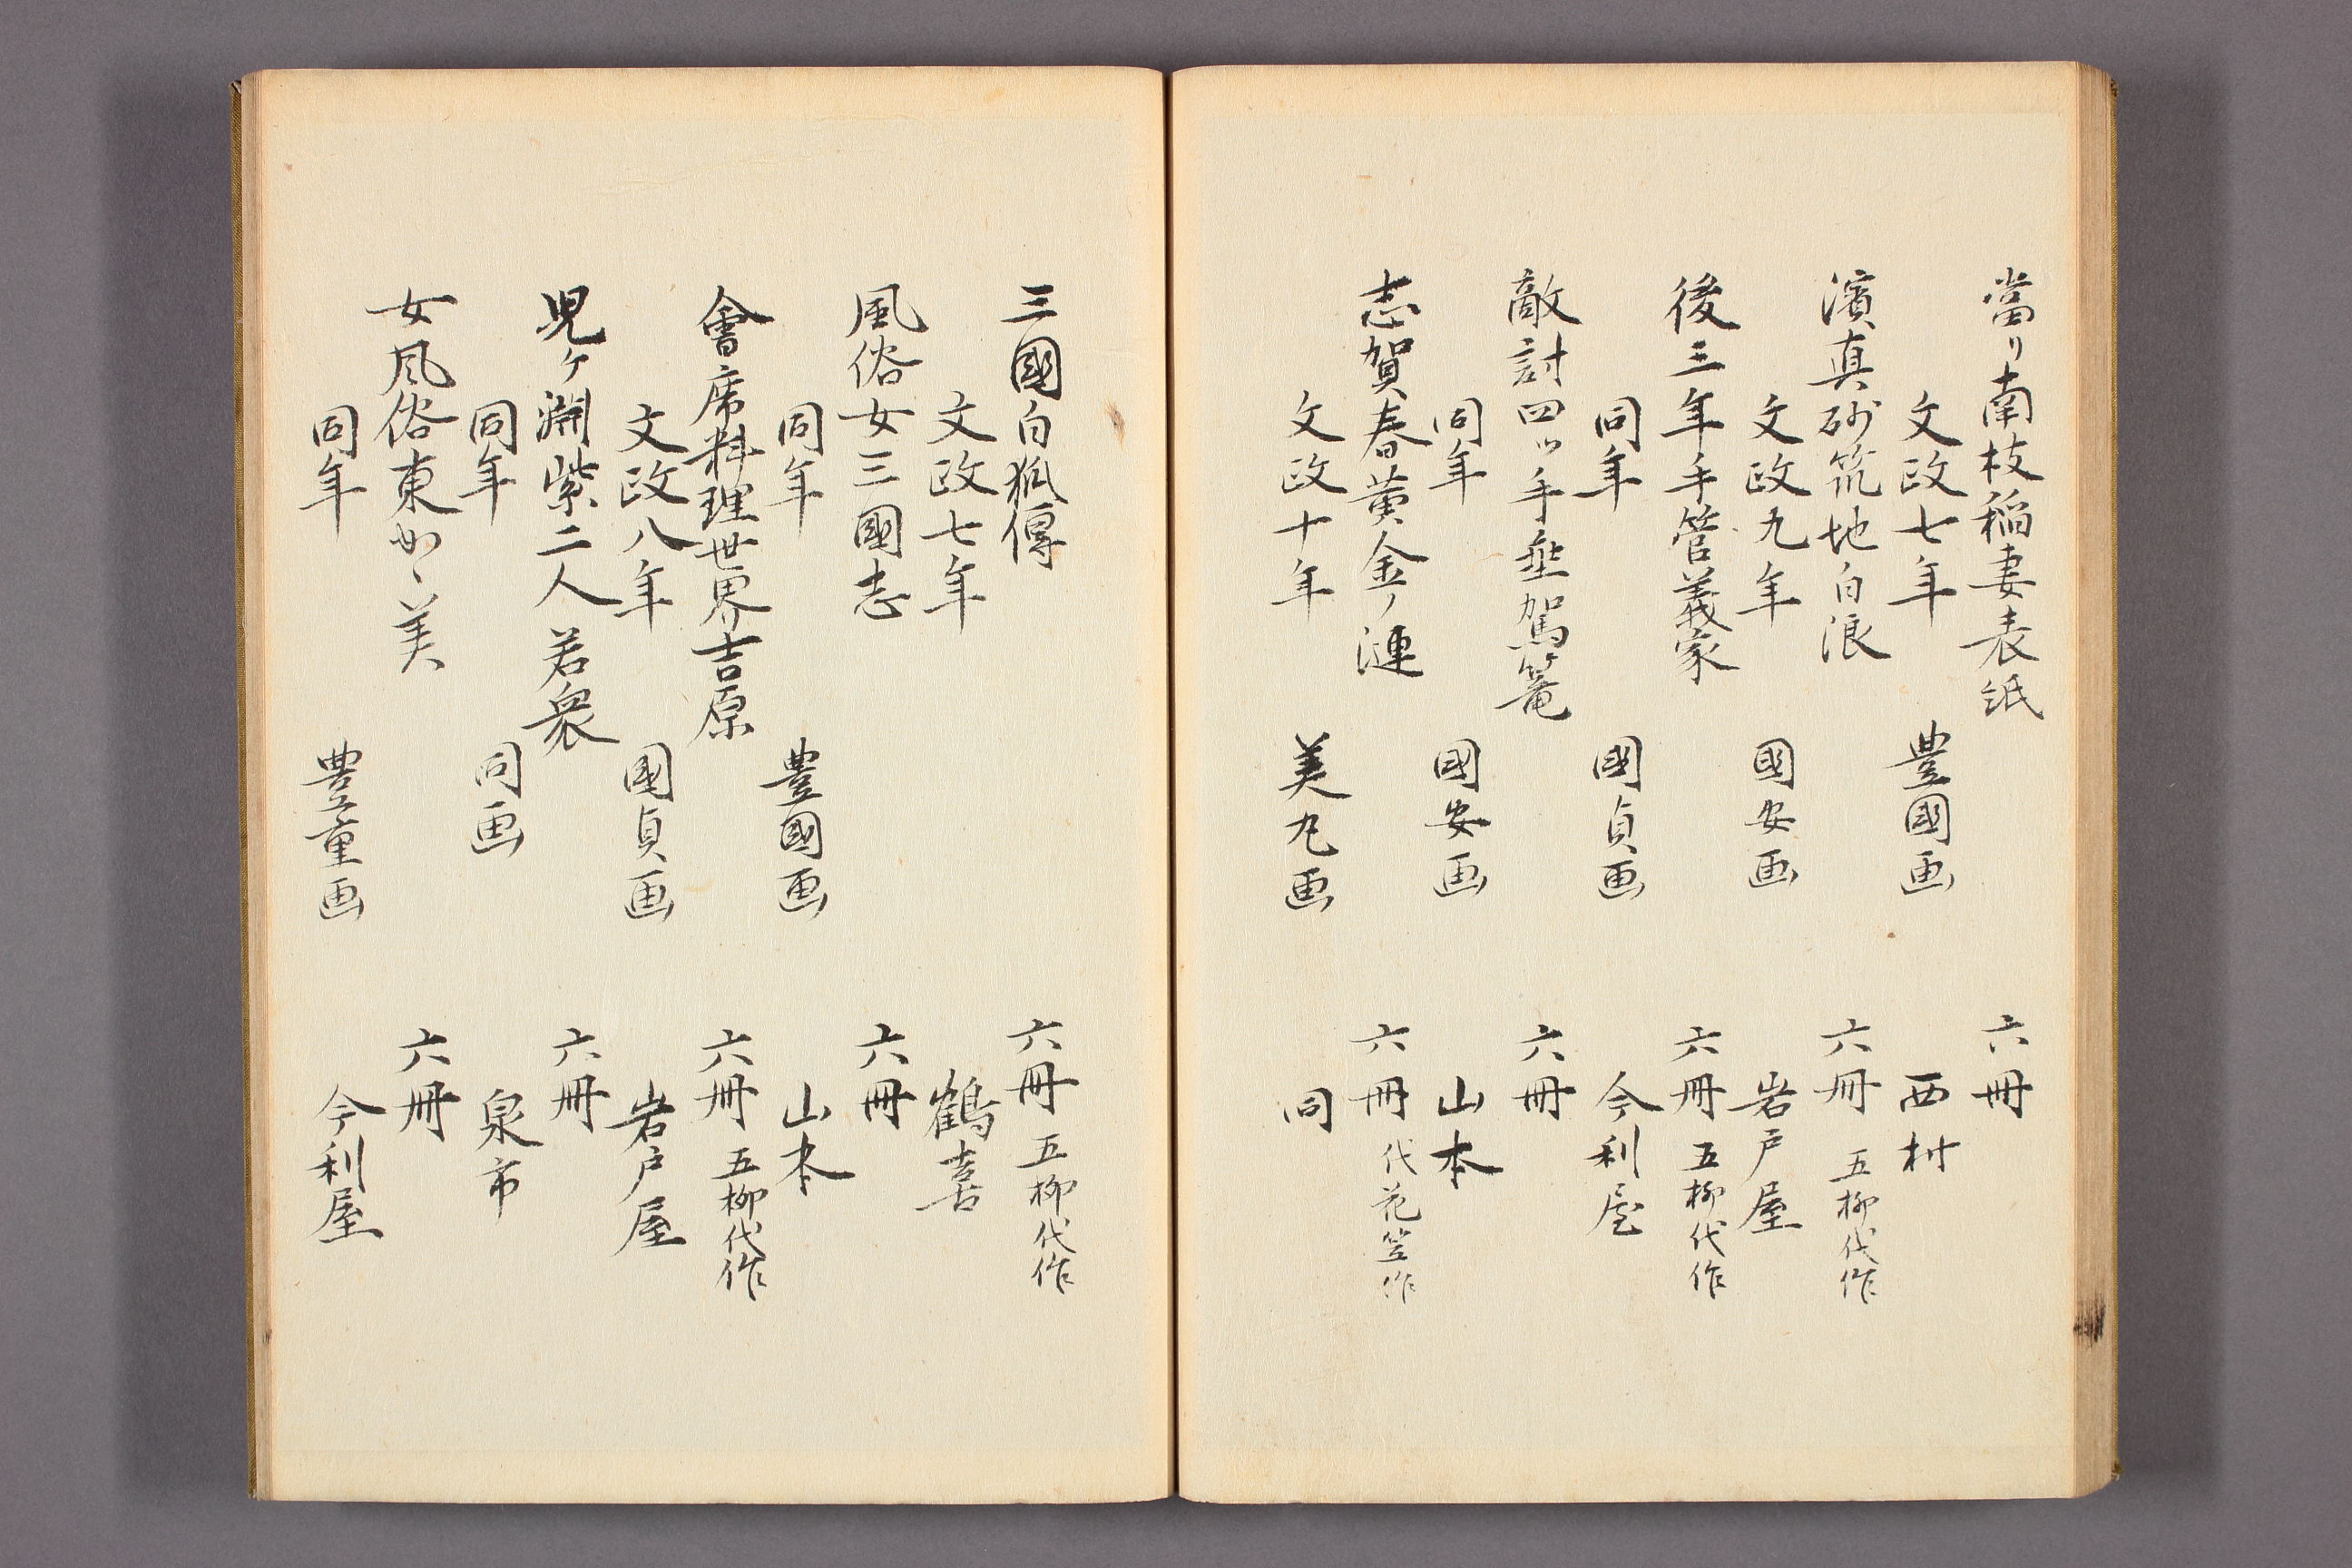 當リ南枝稲妻表紙 六冊
文政七年 豊國画 西村
濱真砂筑地白浪 六冊 五柳代作
文政九年 國安画 岩戸屋
後三年手管義家 六冊 五柳代作
同年 國貞画 今利屋
敵討四ツ手垂駕篭 六冊
同年 國安画 山本
志賀春黄金ノ漣 六冊 代花笠作
文政十年 美丸画 同
三國白狐傳 六冊 五柳代作
文政七年 鶴喜
風俗女三國志 六冊
同年 豊國画 山本
會席料理世界吉原 六冊 五柳代作
文政八年 國貞画 岩戸屋
児ケ淵紫二人若衆 六冊
同年 同画 泉市
女風俗東かゝ美 六冊
同年 豊重画 今利屋